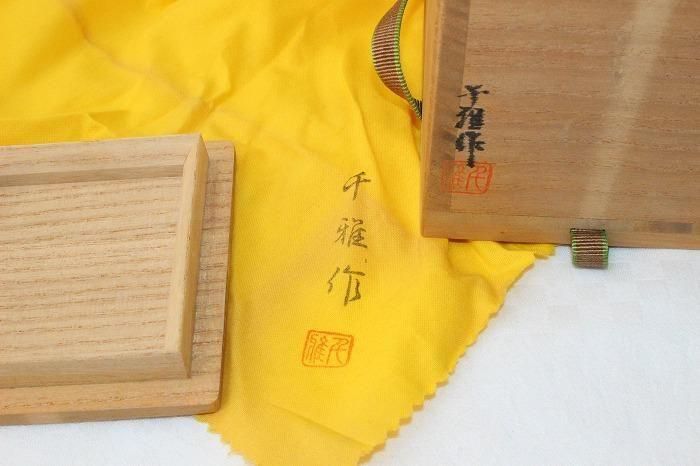 千雅作
千雅作